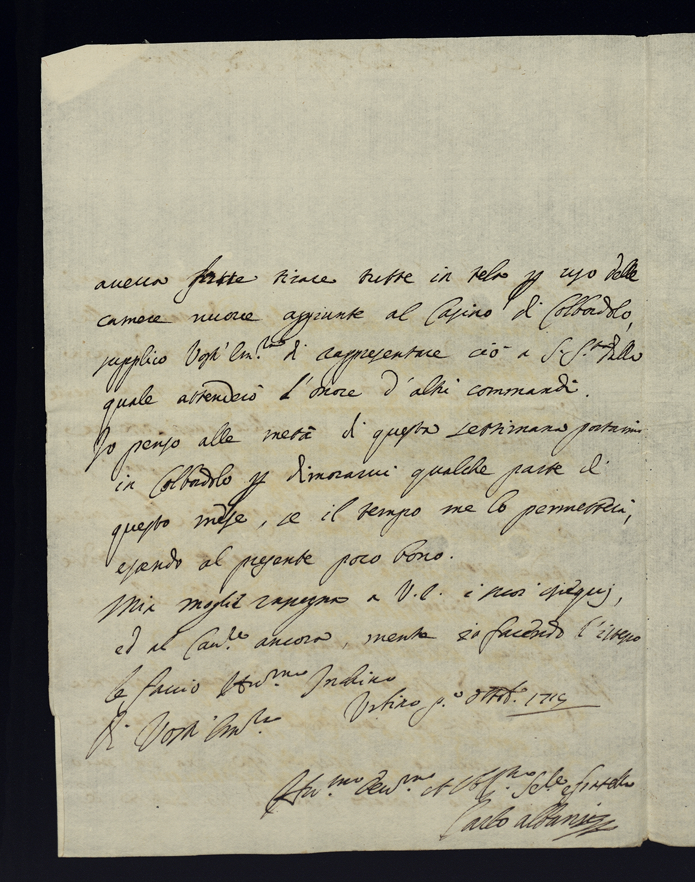 avevo fatte tirare tutte in tela p uso delle
camere nuove aggiunte al Casino di Colbordolo,
supplico Vost' Em.za di rappresentare ciò a S. S.tà dalla
quale attenderò l'onore d'altri commandi.
Io penso alle metà di questa settimana portarmi
in Colbordolo p dimorarvi qualche parte di
questo mese, se il tempo me lo permetterà,
essendo al presente poco bono.
Mia moglie rassegna a V. E. i suoi ossequj,
ed al Cav.re ancora, mentre io facendo l'istesso
le faccio Hu.mo Inchino
di Vost' Em.za Urbino p.o Ottob. 1715
Hu.mo Dev.mo et Obb.mo Ser.e e fratello
Carlo Albani